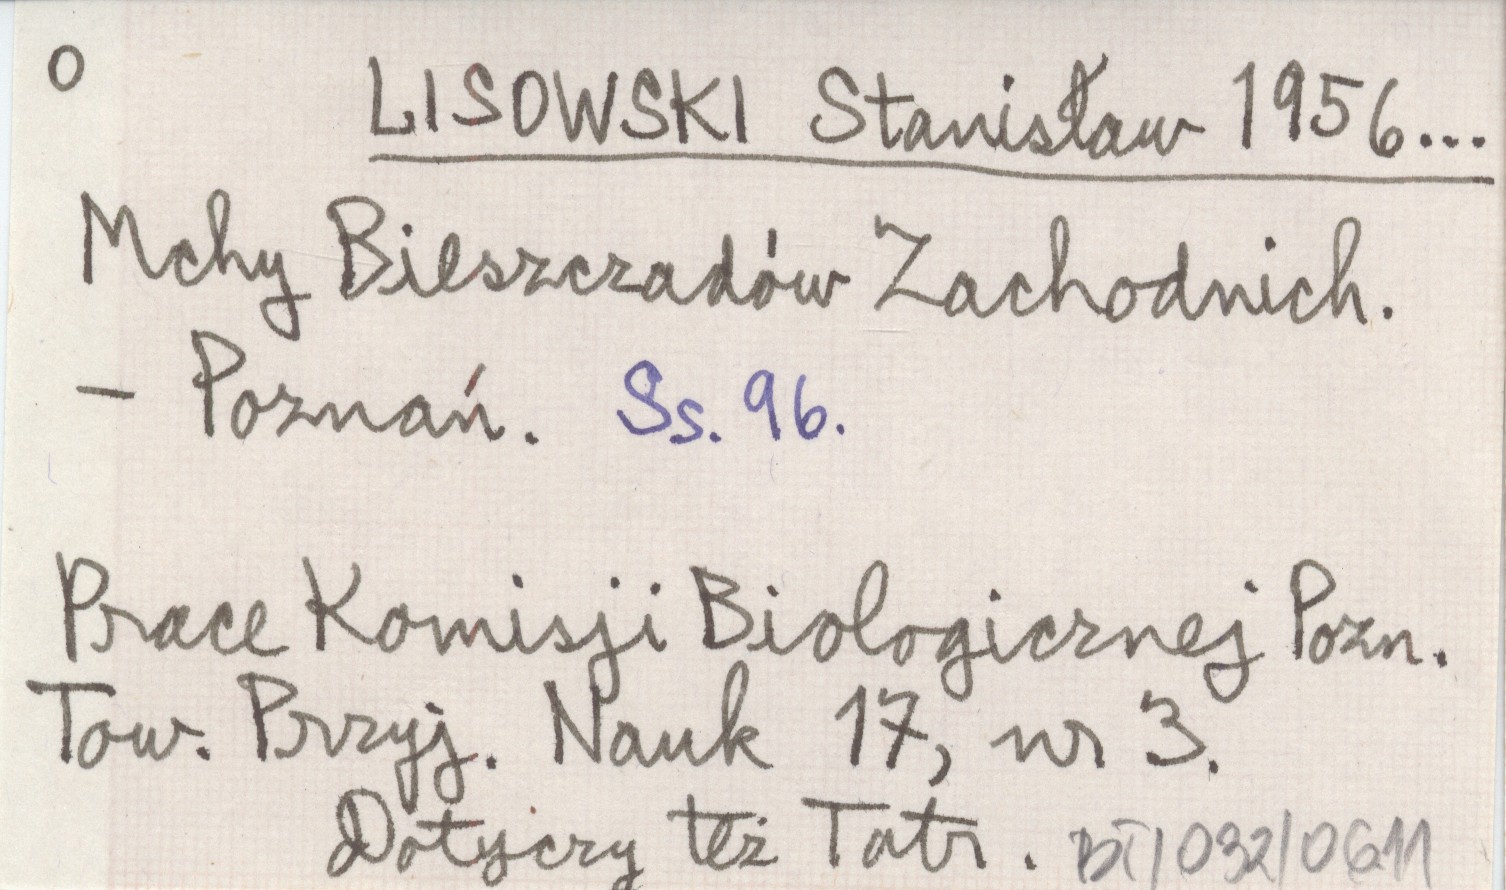 O LISOWSKI Stanisław 1956...
Mchy Bieszczadów Zachodnich.
– Poznań. Ss. 96.
Prace Komisji Biologicznej Pozn.
Tow. Przyj. Nauk 17, nr 3.
Dotyczy też Tatr. BT/032/0611